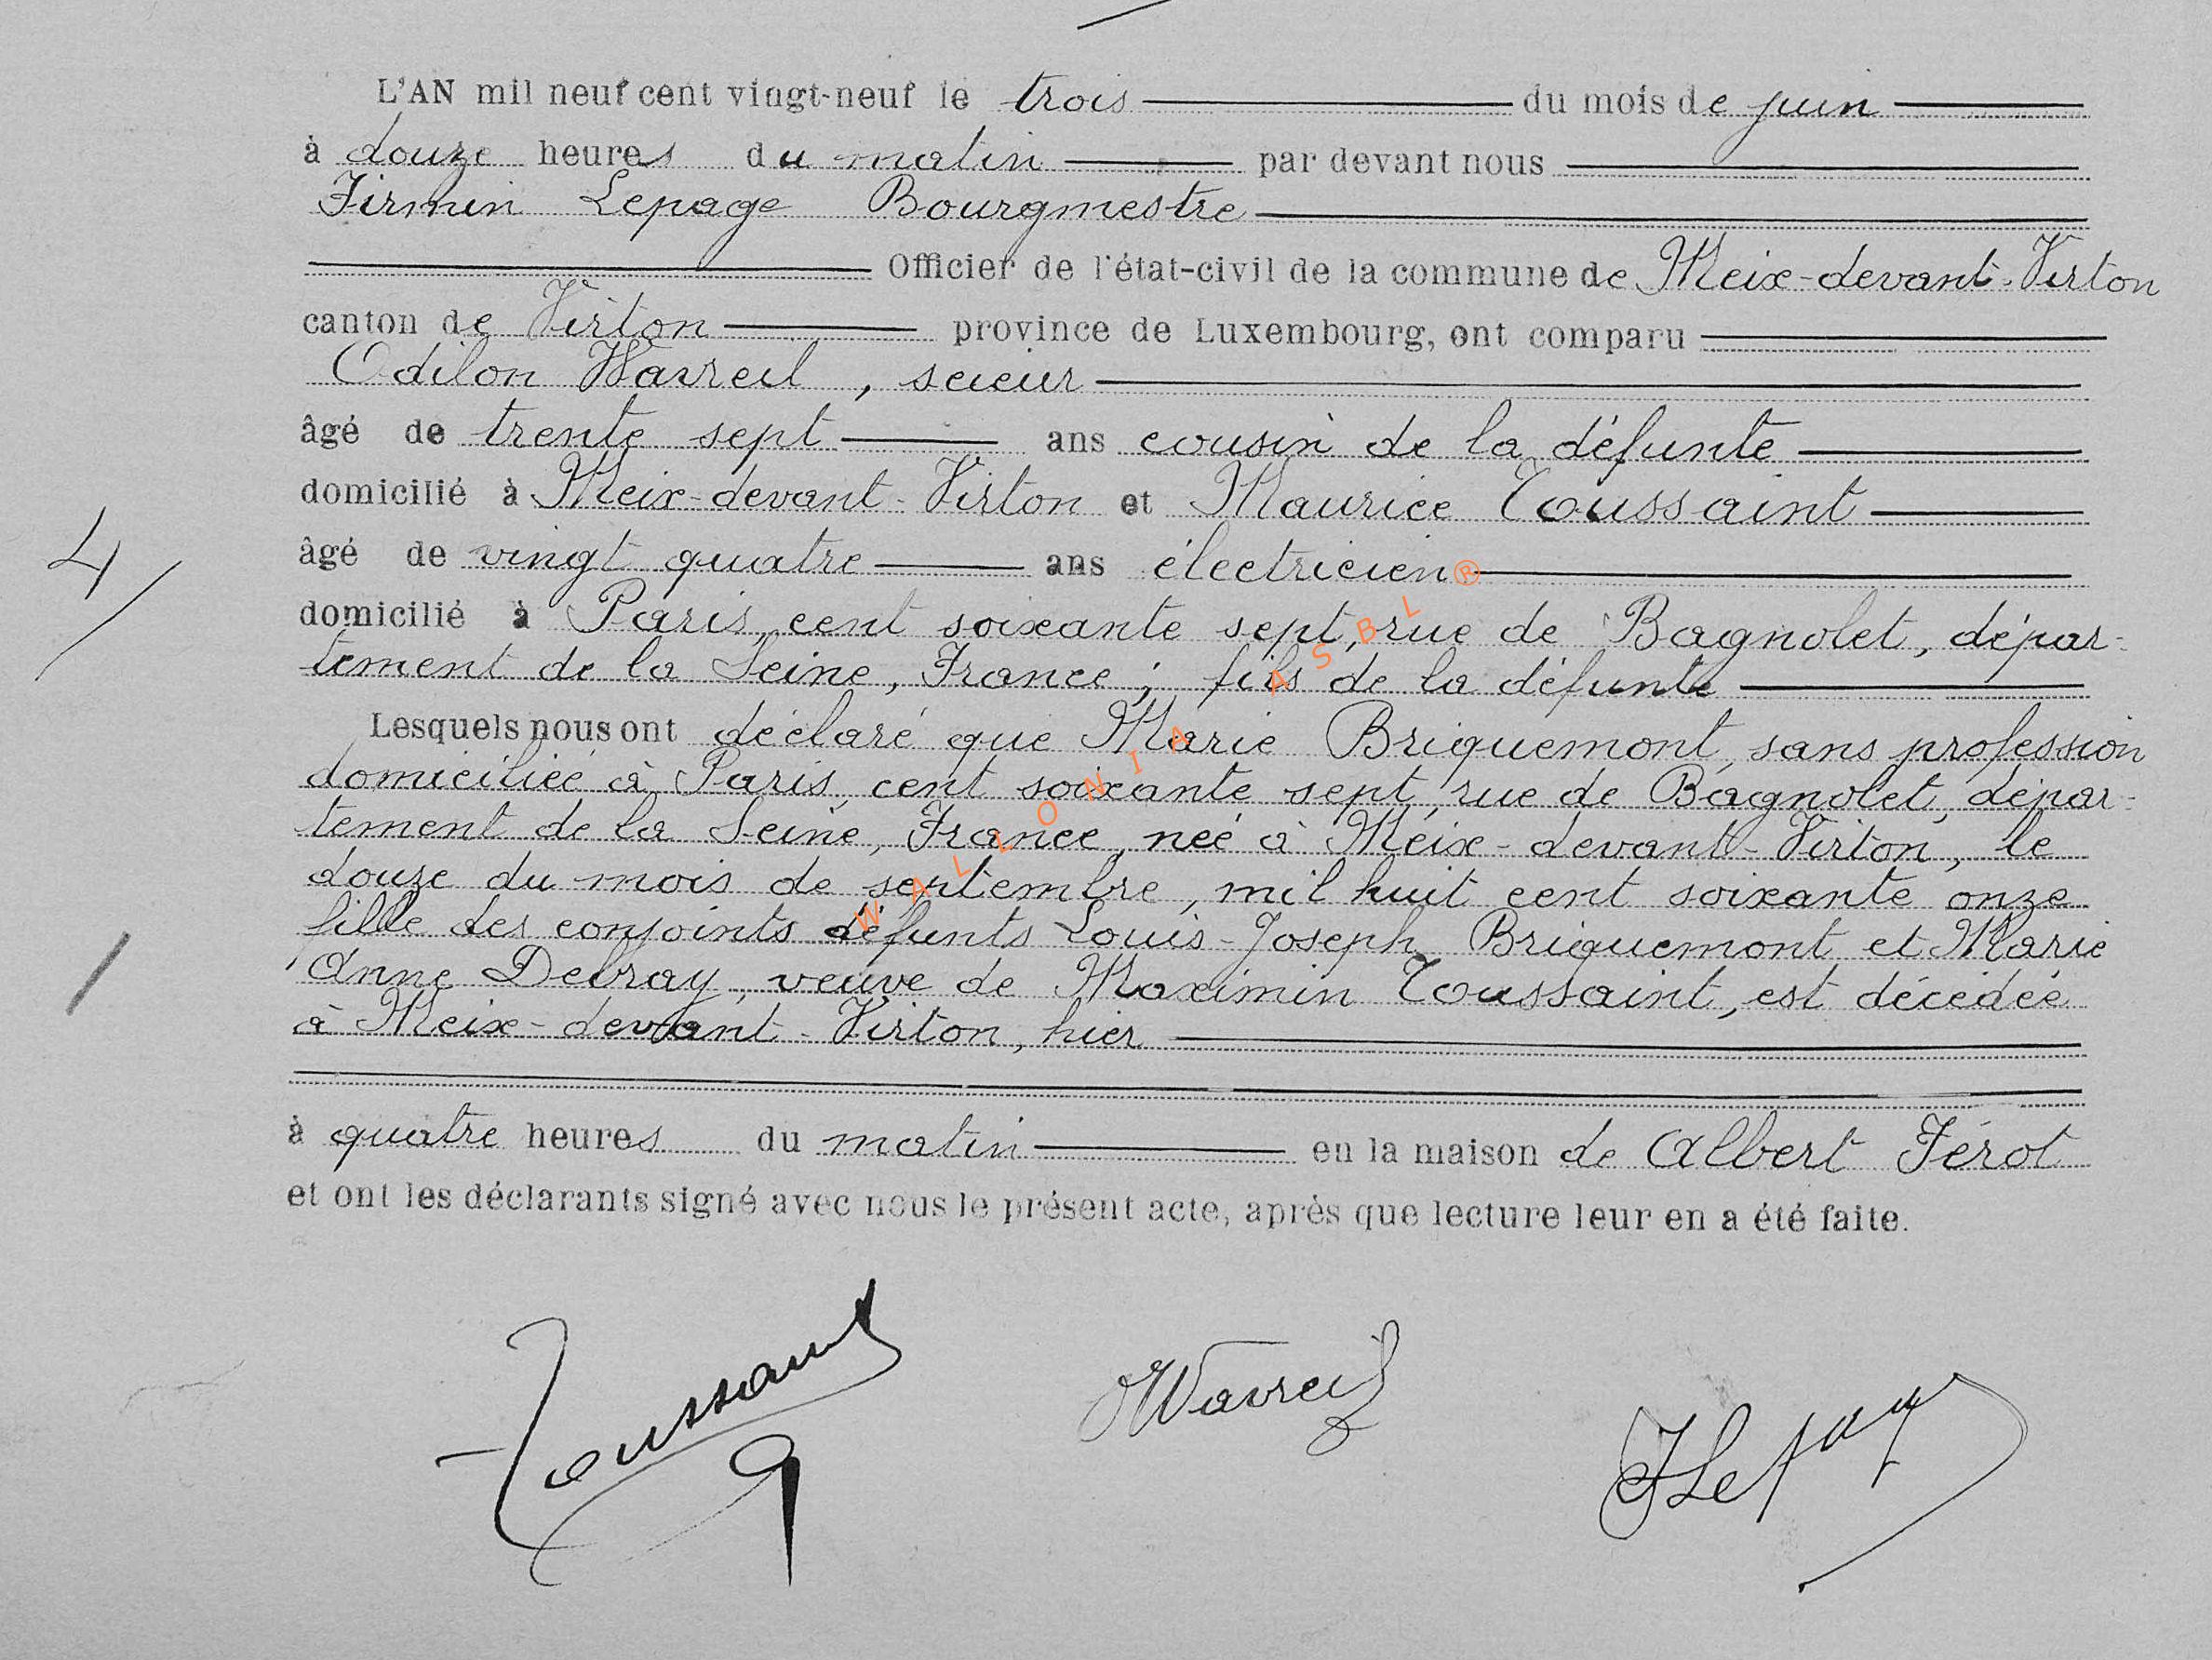 L'AN mil neuf cent vingt-neuf le trois du mois de juin
à douze heures du matin par devant nous
Firmin Lepage Bourgmestre
Officier de l'état-civil de la commune de Meix-devant-Virton
canton de Virton province de Luxembourg, ont comparu
Odilon Wavreil, scieur
âgé de trente sept ans cousin de la défunte
domicilié à Meix-devant-Virton et Maurice Toussaint
4
âgé de vingt quatre ans électricien
domicilié à Paris, cent soixante sept, rue de Bagnolet, dépar-
tement de la Seine, France; fils de la défunte
Lesquels nous ont déclaré que Marie Briquemont, sans profession
domiciliée à Paris, cent soixante sept, rue de Bagnolet, dépar-
tement de la Seine, France, née à Meix-devant-Virton, le
douze du mois de septembre, mil huit cent soixante onze
fille des conjoints défunts Louis-Joseph Briquemont et Marie
Anne Debray, veuve de Maximin Toussaint, est décédée
à Meix-devant-Virton, hier
à quatre heures du matin en la maison de Albert Férot
et ont les déclarants signé avec nous le présent acte, après que lecture leur en a été faite.
Toussaint
OWavreil
FLepage
WALLONIA ASBL ®